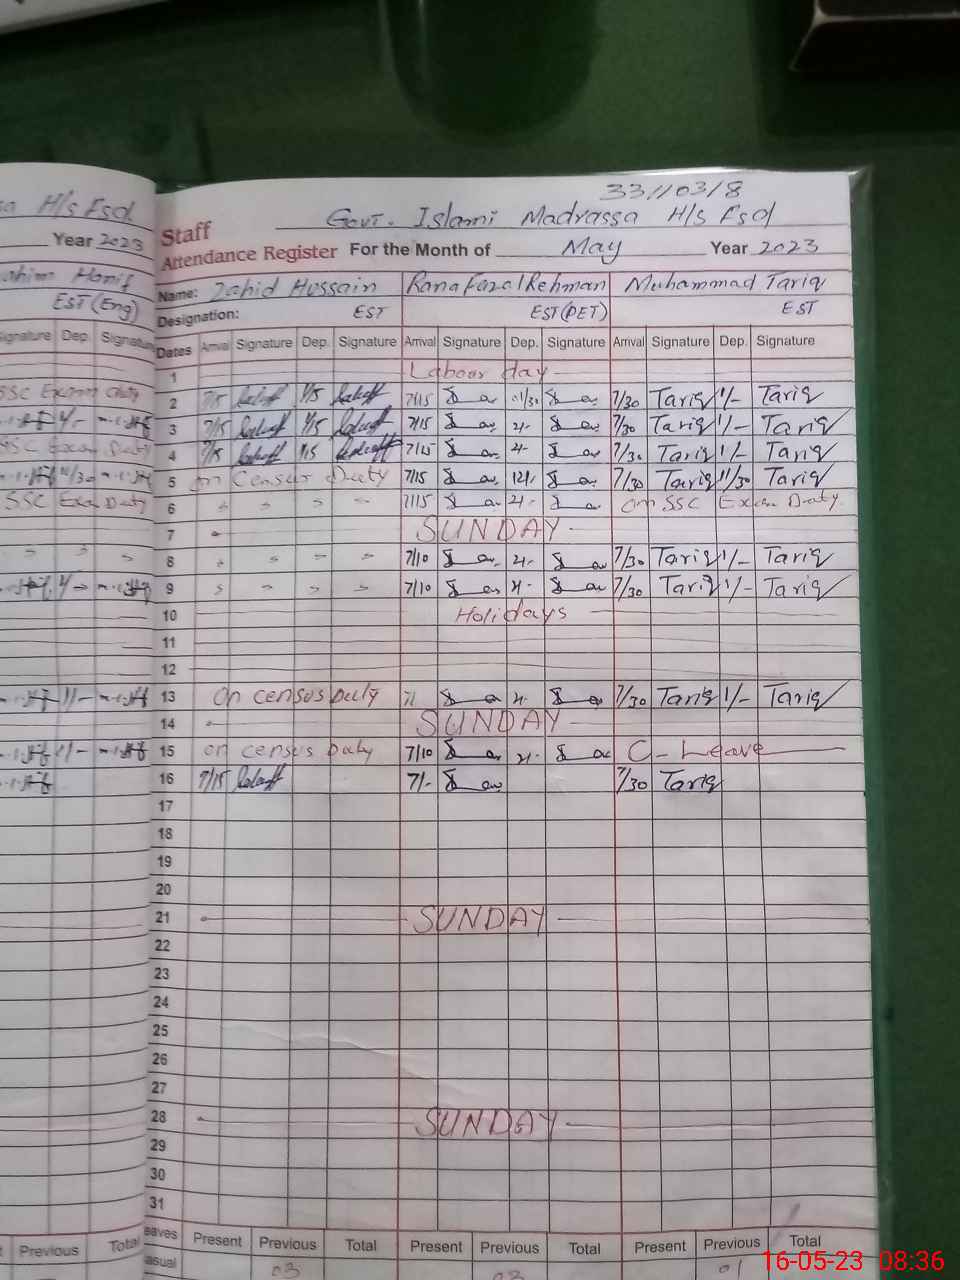 H/s Fsd
33110318
Govt. Islami Madrassa H/s Fsd
Year 2023
Staff
Attendance Register For the Month of May Year 2023
Hanif
Name: Zahid Hussain Rana Fazal Rehman Muhammad Tariq
EST (Eng)
Designation: EST EST (PET) EST
Signature Dep. Signature
Dates Arrival Signature Dep. Signature Arrival Signature Dep. Signature Arrival Signature Dep. Signature
1 Labour day
SSC Exam duty
2 7/15 1/15 7/15 11/30 7/30 Tariq 1/- Tariq
3 7/15 1/15 7/15 2/- 7/30 Tariq 1/- Tariq
SSC Exam Duty
4 7/15 1/15 7/15 2/- 7/30 Tariq 1/- Tariq
11/30
5 on Census Duty 7/15 12/- 7/30 Tariq 11/30 Tariq
SSC Exam Duty
6 " " " " 7/15 2/- on SSC Exam Duty
7 SUNDAY
8 " " " " 7/10 2/- 7/30 Tariq 1/- Tariq
9 " " " " 7/10 2/- 7/30 Tariq 1/- Tariq
10 Holidays
11
12
13 On census Duty 7/ 2/- 7/30 Tariq 1/- Tariq
14 SUNDAY
15 on census Duty 7/10 2/- C-Leave
16 7/15 7/- 7/30 Tariq
17
18
19
20
21 SUNDAY
22
23
24
25
26
27
28 SUNDAY
29
30
31
Previous Total
Leaves Present Previous Total Present Previous Total Present Previous Total
Casual 03 03 01
16-05-23 08:36